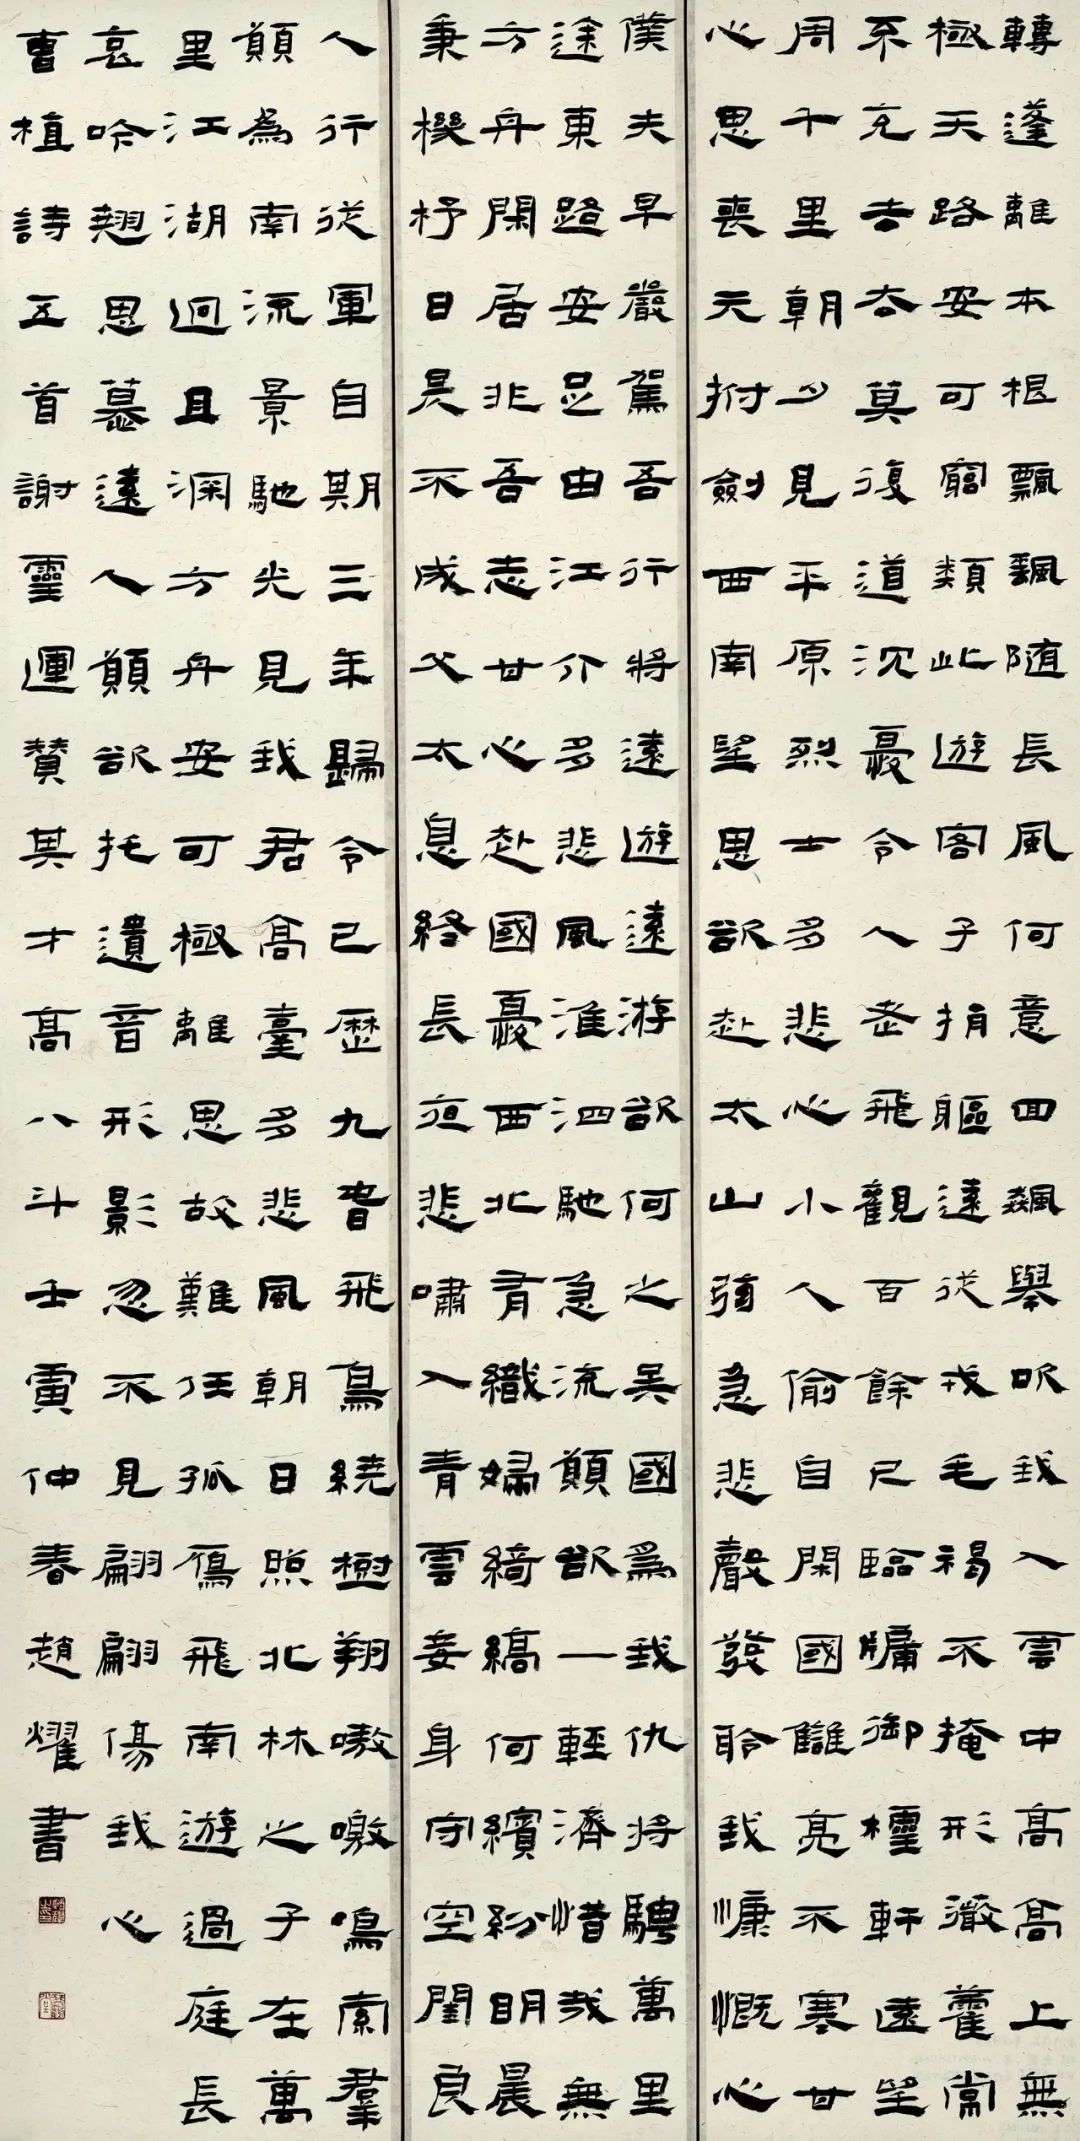 轉蓬離本根飄飖随長風何意回飆舉吹我入雲中高高上無
極天路安可窮類此遊客子捐軀遠從戎毛褐不掩形薇藿常
不充去去莫復道沈憂令人老飛觀百餘尺臨牖御櫺軒遠望
周千里朝夕見平原烈士多悲心小人偷自閑國讎亮不塞甘
心思喪元拊劍西南望思欲赴太山弦急悲聲發聆我慷慨心
僕夫早嚴駕吾行將遠遊遠游欲何之吳國爲我仇將騁萬里
途東路安足由江介多悲風淮泗馳急流願欲一輕濟惜哉無
方舟閑居非吾志甘心赴國憂西北有織婦綺縞何繽紛明晨
秉機杼日昃不成文太息終長夜悲嘯入青雲妾身守空閨良
人行從軍自期三年歸今已歷九春飛鳥繞樹翔噭噭鳴索羣
願為南流景馳光見我君高臺多悲風朝日照北林之子在萬
里江湖迥且深方舟安可極離思故難任孤鴈飛南遊過庭長
哀吟翹思慕遠人願欲托遺音形影忽不見翩翩傷我心
曹植詩五首謝靈運贊其才高八斗壬寅仲春趙耀書